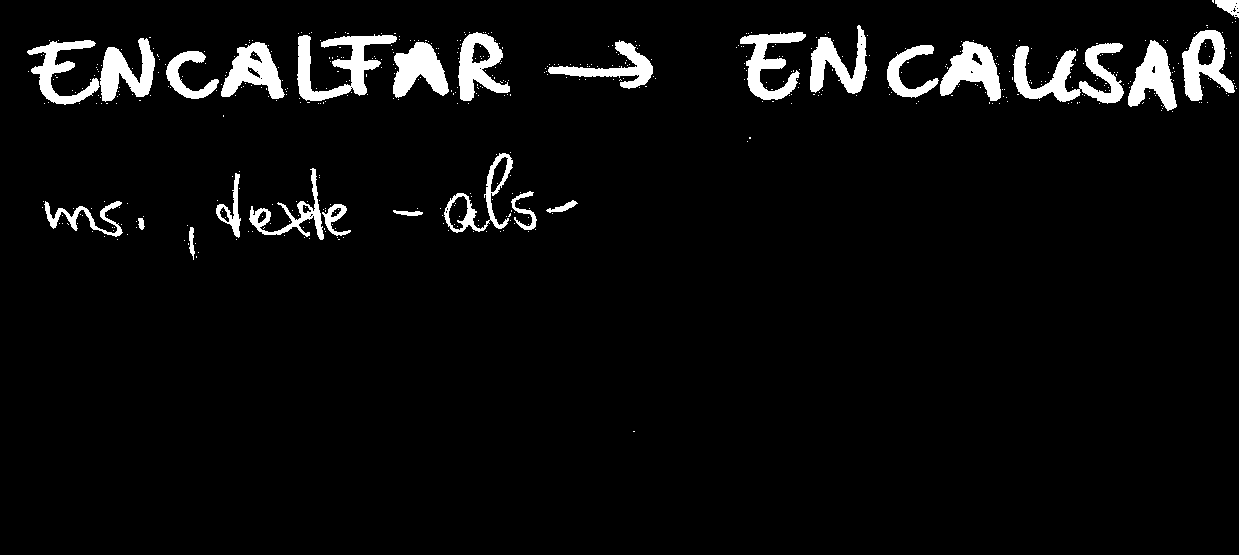 ENCALFAR → ENCAUSAR
ms., texte -als-